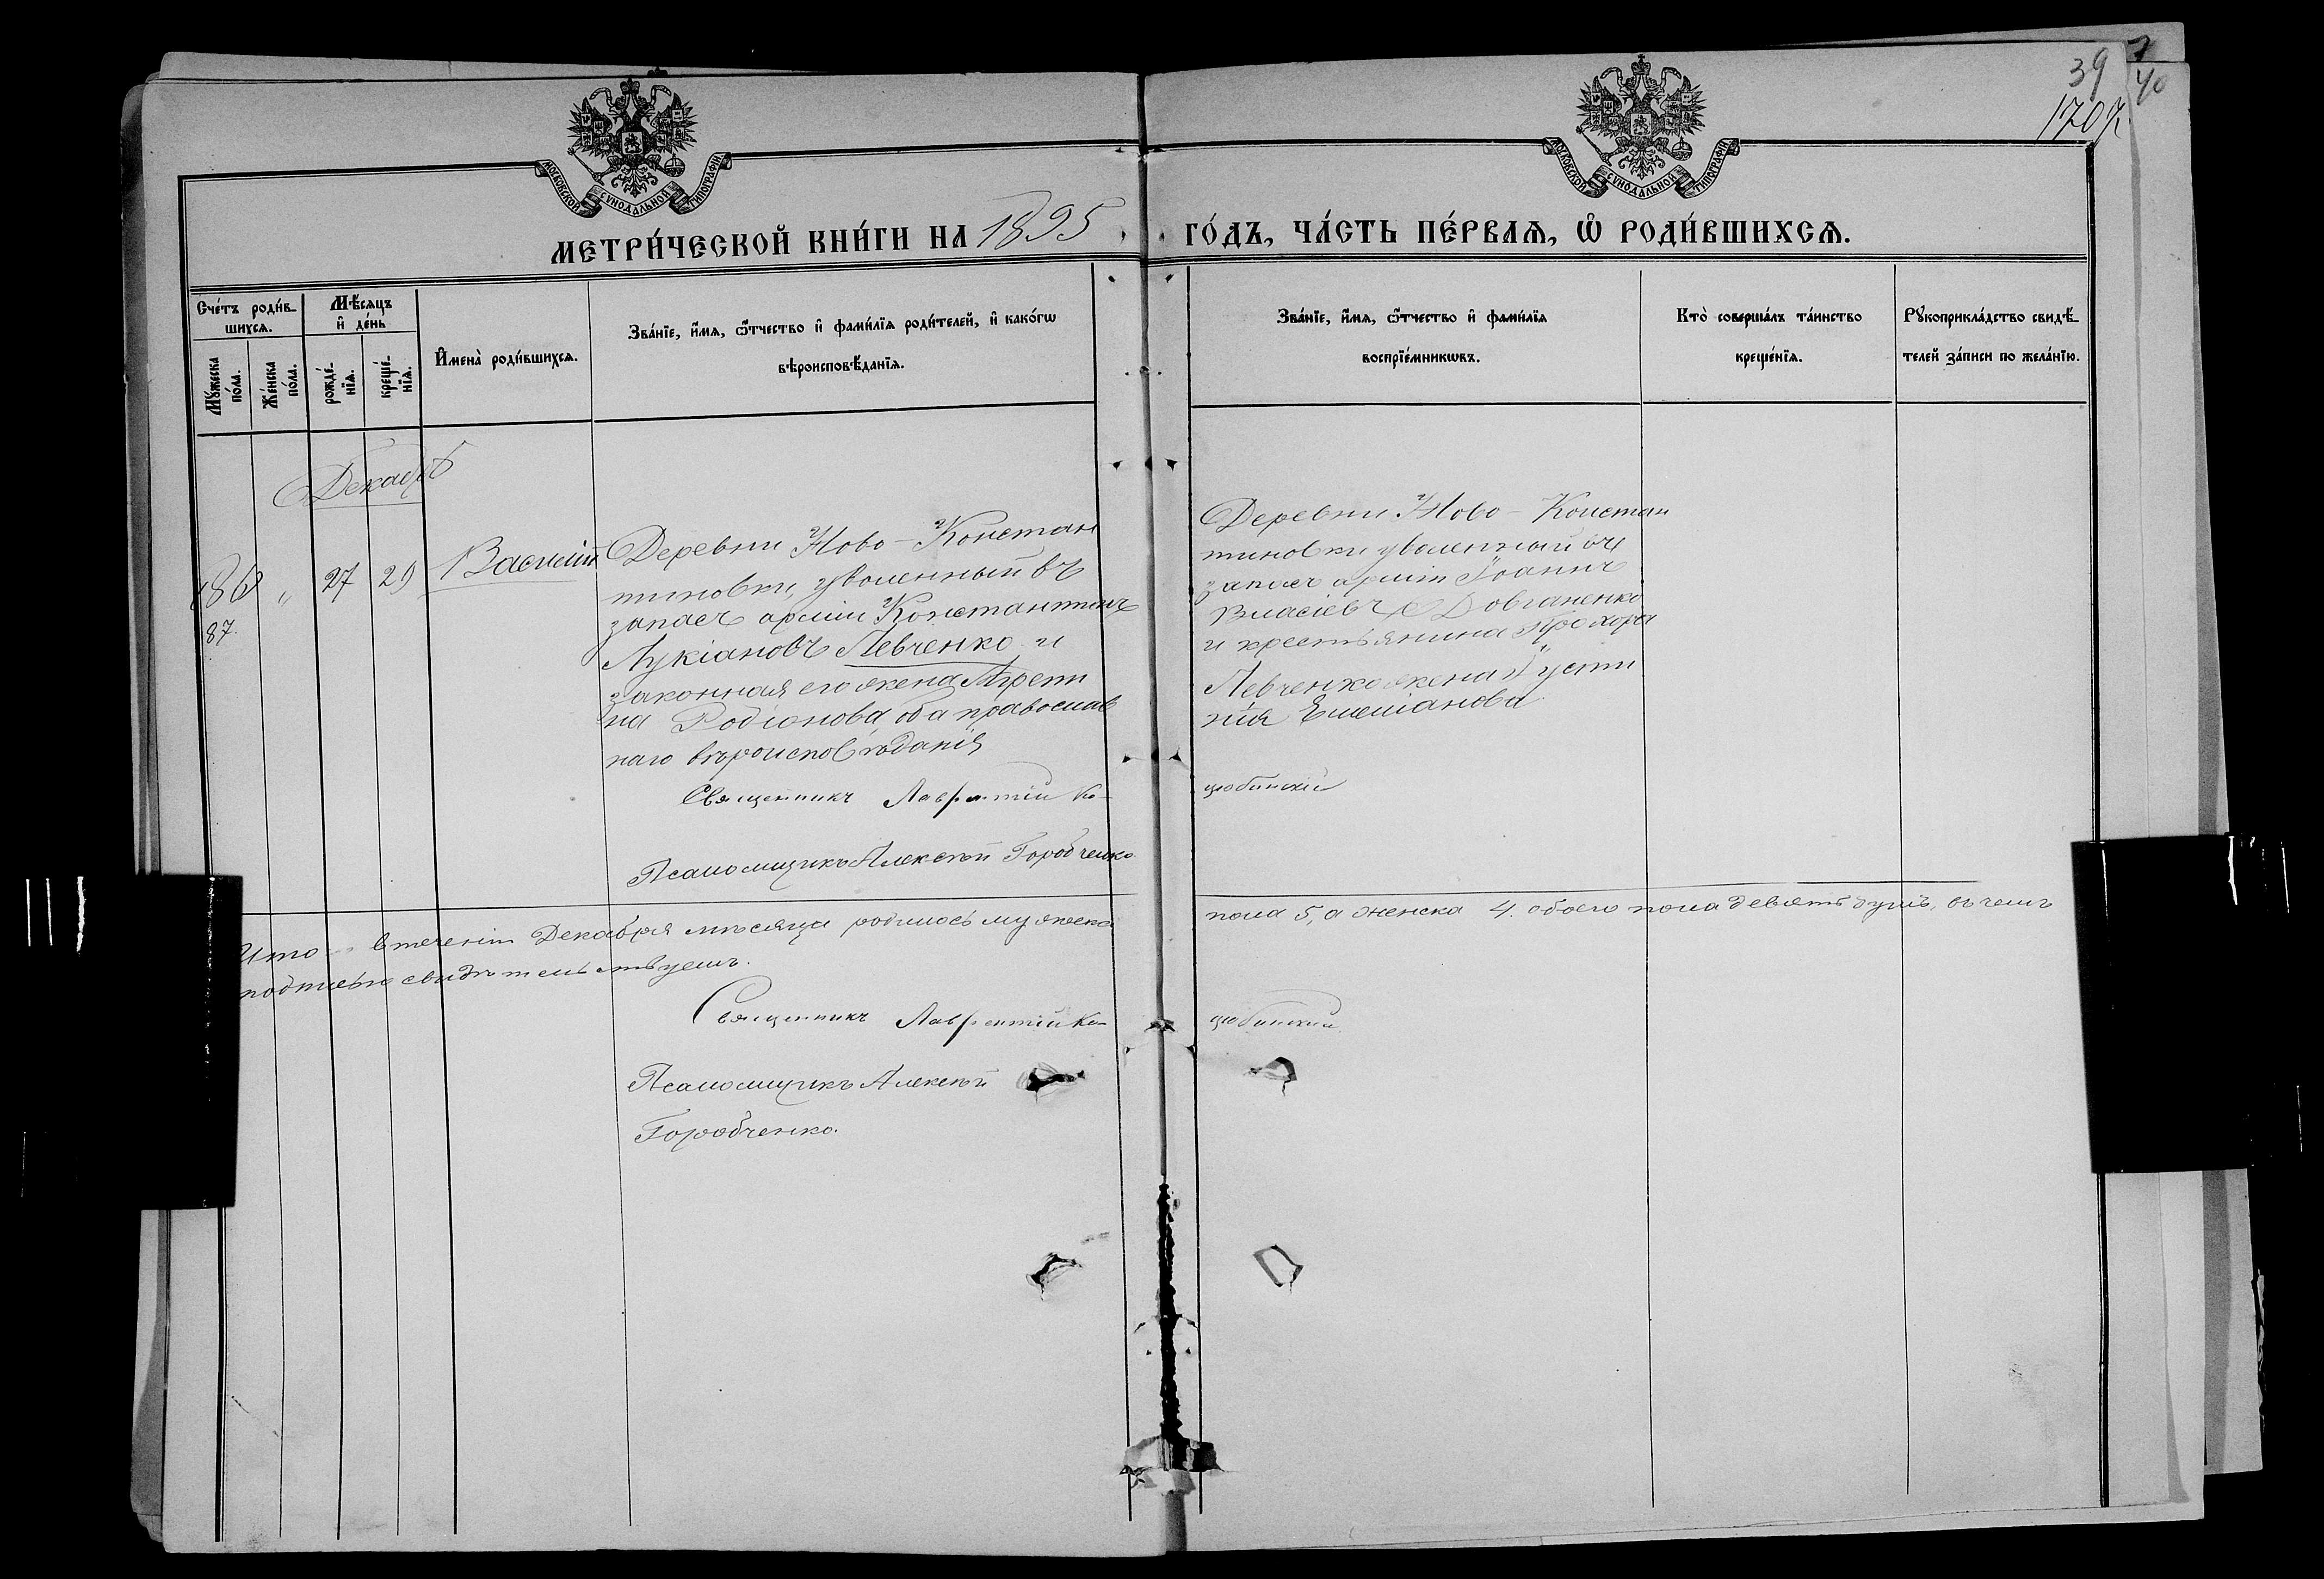 39
40
1707
МОСКОВСКОЙ СѴНОДАЛЬНОЙ ТИПОГРАФІИ
МОСКОВСКОЙ СѴНОДАЛЬНОЙ ТИПОГРАФІИ
МЕТРИ́ЧЕСКОЙ КНИ́ГИ НА 1895 ГО́ДЪ, ЧА́СТЬ ПЕ́РВАѦ, Ѡ РОДИ́ВШИХСѦ.
Сче́тъ роди́в-
шихсѧ.
Мꙋ́жеска
по́ла.
Же́нска
по́ла.
Мѣ́сѧцъ
и҆ де́нь
рожде́-
нїѧ.
креще́-
нїѧ.
И҆мена̀ роди́вшихсѧ.
Зва́нїе, и҆́мѧ, ѻ҆́тчество и҆ фами́лїѧ роди́телей, и҆ како́гѡ
вѣроисповѣ́данїѧ.
Зва́нїе, и҆́мѧ, ѻ҆́тчество и҆ фами́лїѧ
воспрїе́мникѡвъ.
Кто̀ соверша́лъ та́инство
креще́нїѧ.
Рꙋкоприкла́дство свидѣ́-
телей за́писи по жела́нїю.
Декабрь
87.
„
27
29
Василій
Деревни Ново-Констан
тиновки, уволенный въ
запасъ арміи Константинъ
Лукіановъ Левченко и
законная его жена Агрепи
на Родіонова, оба православ
наго вѣроисповѣданія
Деревни Ново-Констан
тиновки уволенный въ
запасъ арміи Іоаннъ
Власіевъ Довганенко
и крестьянина Прохора
Левченко жена Іусти
нія Емеліанова
Священникъ Лаврентій Ко-
цюбинскій
Псаломщикъ Алексѣй Горобченко
Итого въ теченіи Декабря мѣсяца родилось мужеска пола 5, а женска 4. обоего пола девять душъ, въ чемъ
подписью свидѣтельствуемъ.
Священникъ Лаврентій Ко-
цюбинскій
Псаломщикъ Алексѣй
Горобченко.